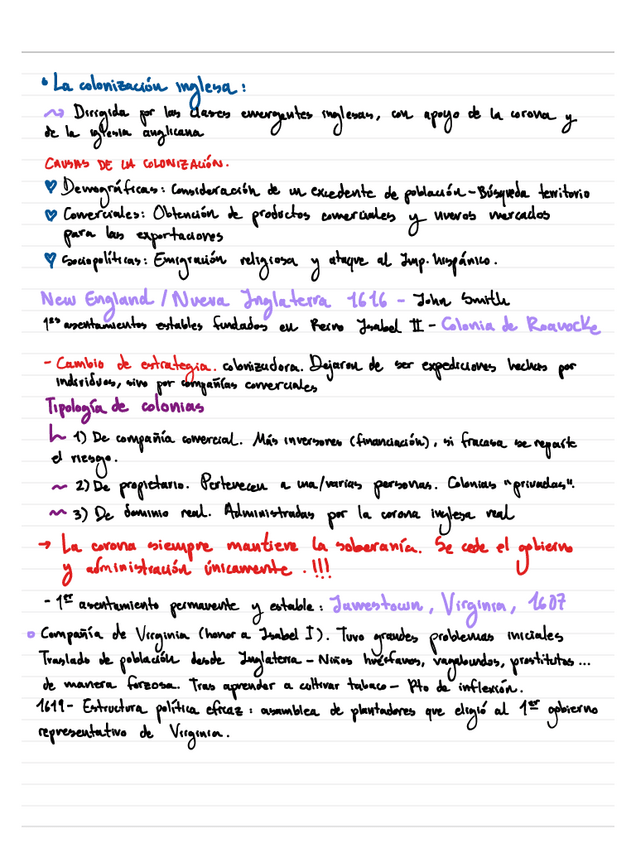 • La colonización inglesa:
~> Dirigida por las clases emergentes inglesas, con apoyo de la corona y
de la iglesia anglicana
CAUSAS DE LA COLONIZACIÓN.
♥ Demográficas: Consideración de un excedente de población - Búsqueda territorio
♥ Comerciales: Obtención de productos comerciales y nuevos mercados
para las exportaciones
♥ Sociopolíticas: Emigración religiosa y ataque al Imp. hispánico.
New England / Nueva Inglaterra 1616 - John Smith
1ºs asentamientos estables fundados en Reino Isabel II - Colonia de Roanocke
- Cambio de estrategia. colonizadora. Dejaron de ser expediciones hechas por
individuos, sino por compañías comerciales
Tipología de colonias
↳ 1) De compañía comercial. Más inversores (financiación), si fracasa se reparte
el riesgo.
~ 2) De propietario. Pertenecen a una/varias personas. Colonias "privadas".
~ 3) De dominio real. Administradas por la corona inglesa real
→ La corona siempre mantiene la soberanía. Se cede el gobierno
y administración únicamente. !!!
- 1er asentamiento permanente y estable: Jamestown, Virginia, 1607
○ Compañía de Virginia (honor a Isabel I). Tuvo grandes problemas iniciales
Traslado de población desde Inglaterra - Niños huérfanos, vagabundos, prostitutas ...
de manera forzosa. Tras aprender a cultivar tabaco - Pto de inflexión.
1619 - Estructura política eficaz: asamblea de plantadores que eligió al 1er gobierno
representativo de Virginia.